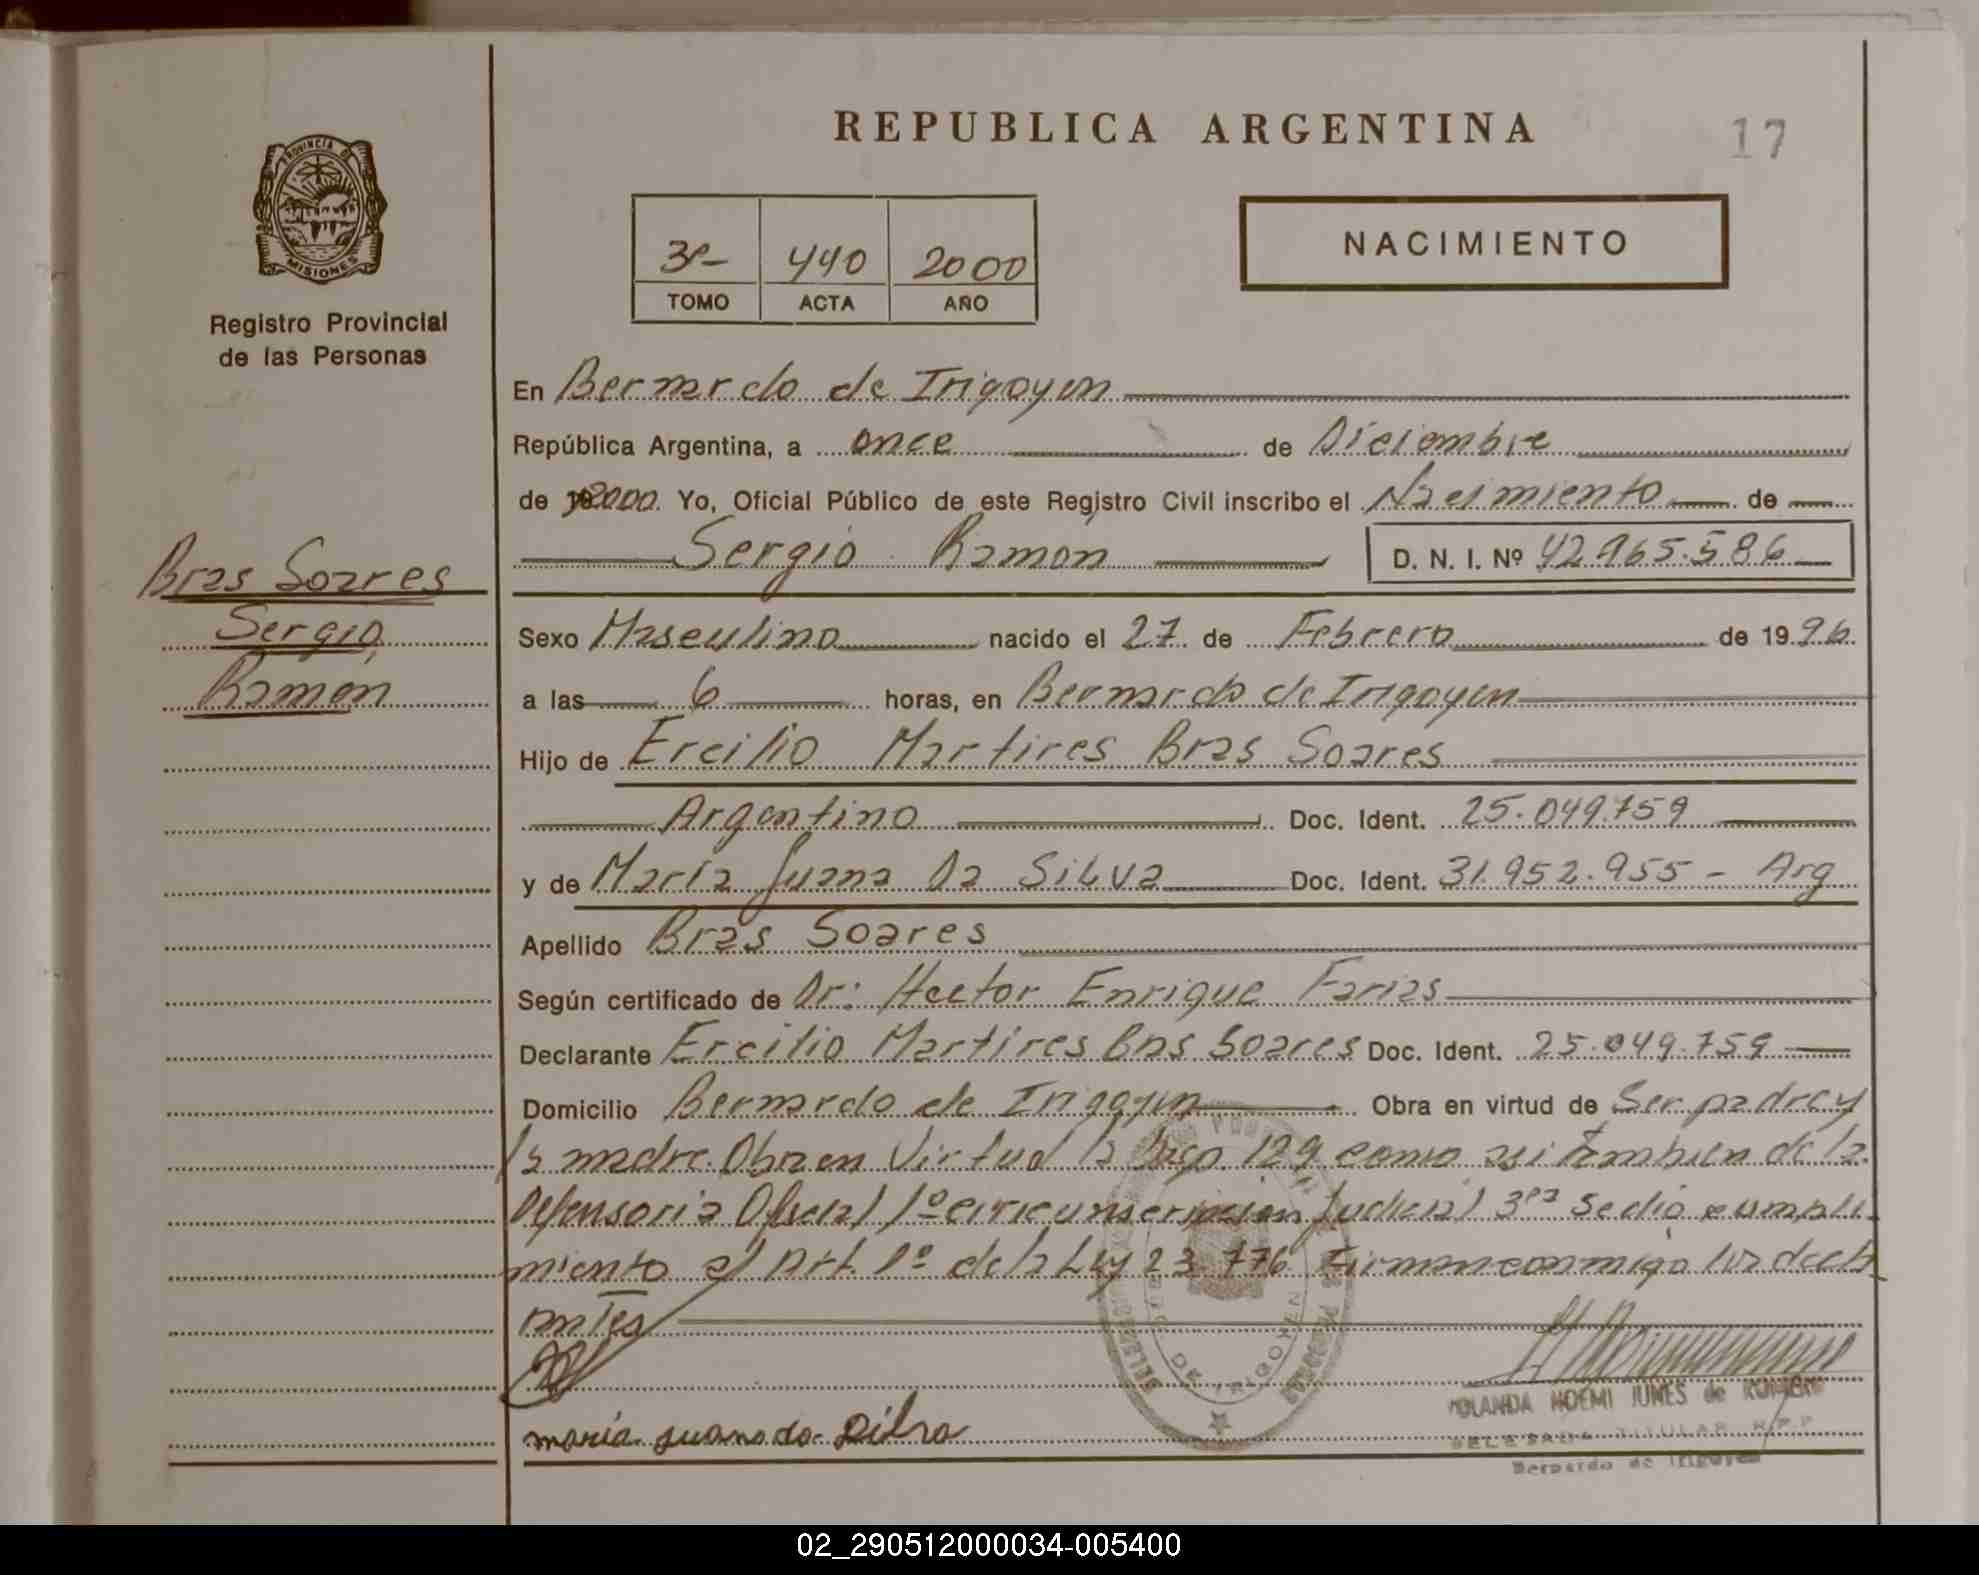 REPUBLICA ARGENTINA
17
PROVINCIA DE
MISIONES
Registro Provincial
de las Personas
3º- 440 2000
TOMO ACTA AÑO
NACIMIENTO
En Bernardo de Irigoyen
República Argentina, a once de Diciembre
de 2000. Yo, Oficial Público de este Registro Civil inscribo el Nacimiento de
Sergio Ramon D. N. I. Nº 42.965.586
Bras Soares
Sergio,
Ramon
Sexo Masculino nacido el 27 de Febrero de 1996
a las 6 horas, en Bernardo de Irigoyen
Hijo de Ercilio Martires Bras Soares
Argentino Doc. Ident. 25.049.759
y de María Juana Da Silva Doc. Ident. 31.952.955 - Arg
Apellido Bras Soares
Según certificado de Dr: Hector Enrique Farias
Declarante Ercilio Martires Bras Soares Doc. Ident. 25.049.759
Domicilio Bernardo de Irigoyen Obra en virtud de Ser padre y
la madre. Obra en Virtud la 129 como asi tambien de la
Defensoria Oficial 1º circunscripcion Judicial 3ra Se dio cumpli
miento al Art. 1º de la Ley 23.776 Firman conmigo los decla
rantes
maria juana da Silva
YOLANDA NOEMI JUNES de ROMERO
DELEGADA TITULAR R.P.P
Bernardo de Irigoyen
DE IRIGOYEN
02_290512000034-005400